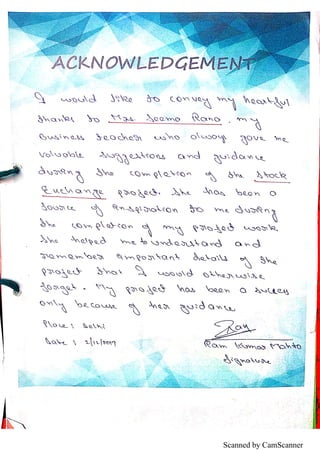 ACKNOWLEDGEMENT
I would like to convey my heartful
thanks to Mrs. Seema Rana, my
Business teacher who always gave me
valuable suggestions and guidance
during the completion of the Stock
Exchange project. She has been a
source of inspiration to me during
the completion of my project work
She helped me to understand and
remember important details of the
project that I would otherwise
forget. My project has been a success
only because of her guidance
Place: Delhi
Date: 2/12/2017
Ray
Ram Kumar Mahto
Signature
Scanned by CamScanner